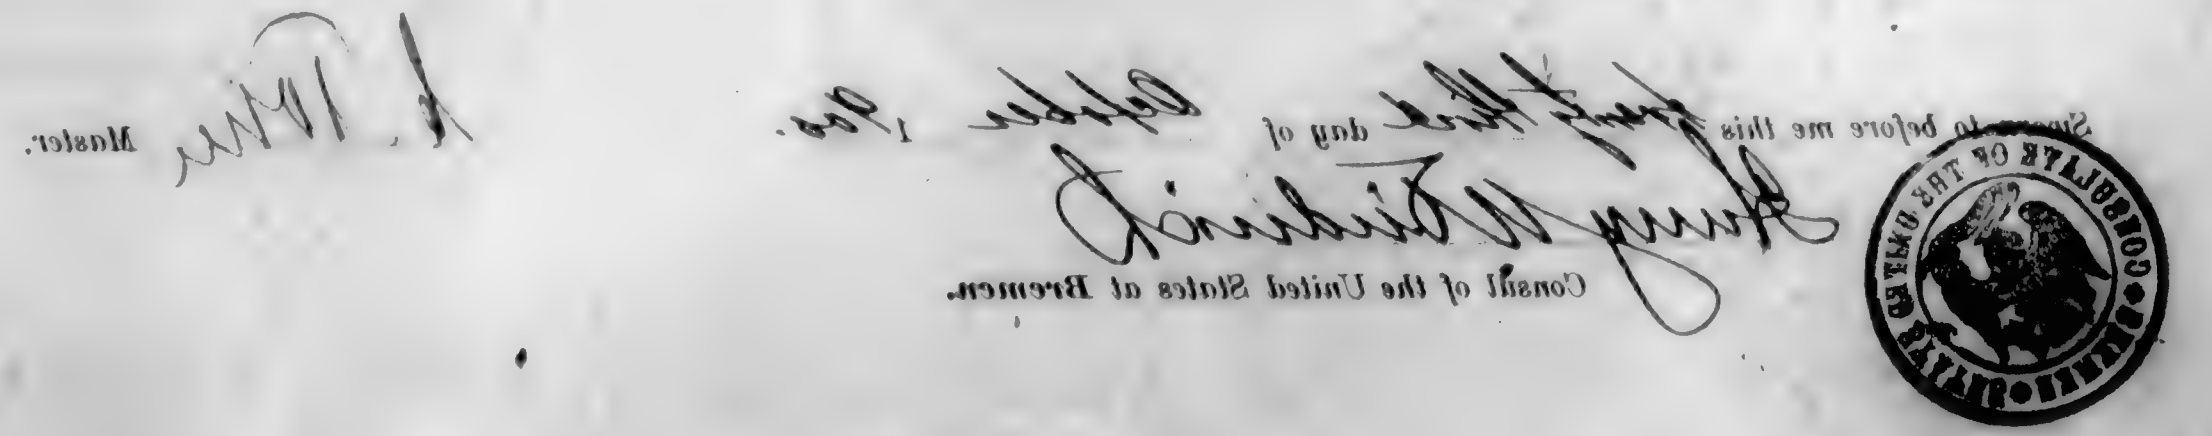 Sworn to before me this twenty third day of October 1900.
Henry W Diederich
Consul of the United States at Bremen.
Master.
CONSULATE OF THE UNITED STATES BREMEN